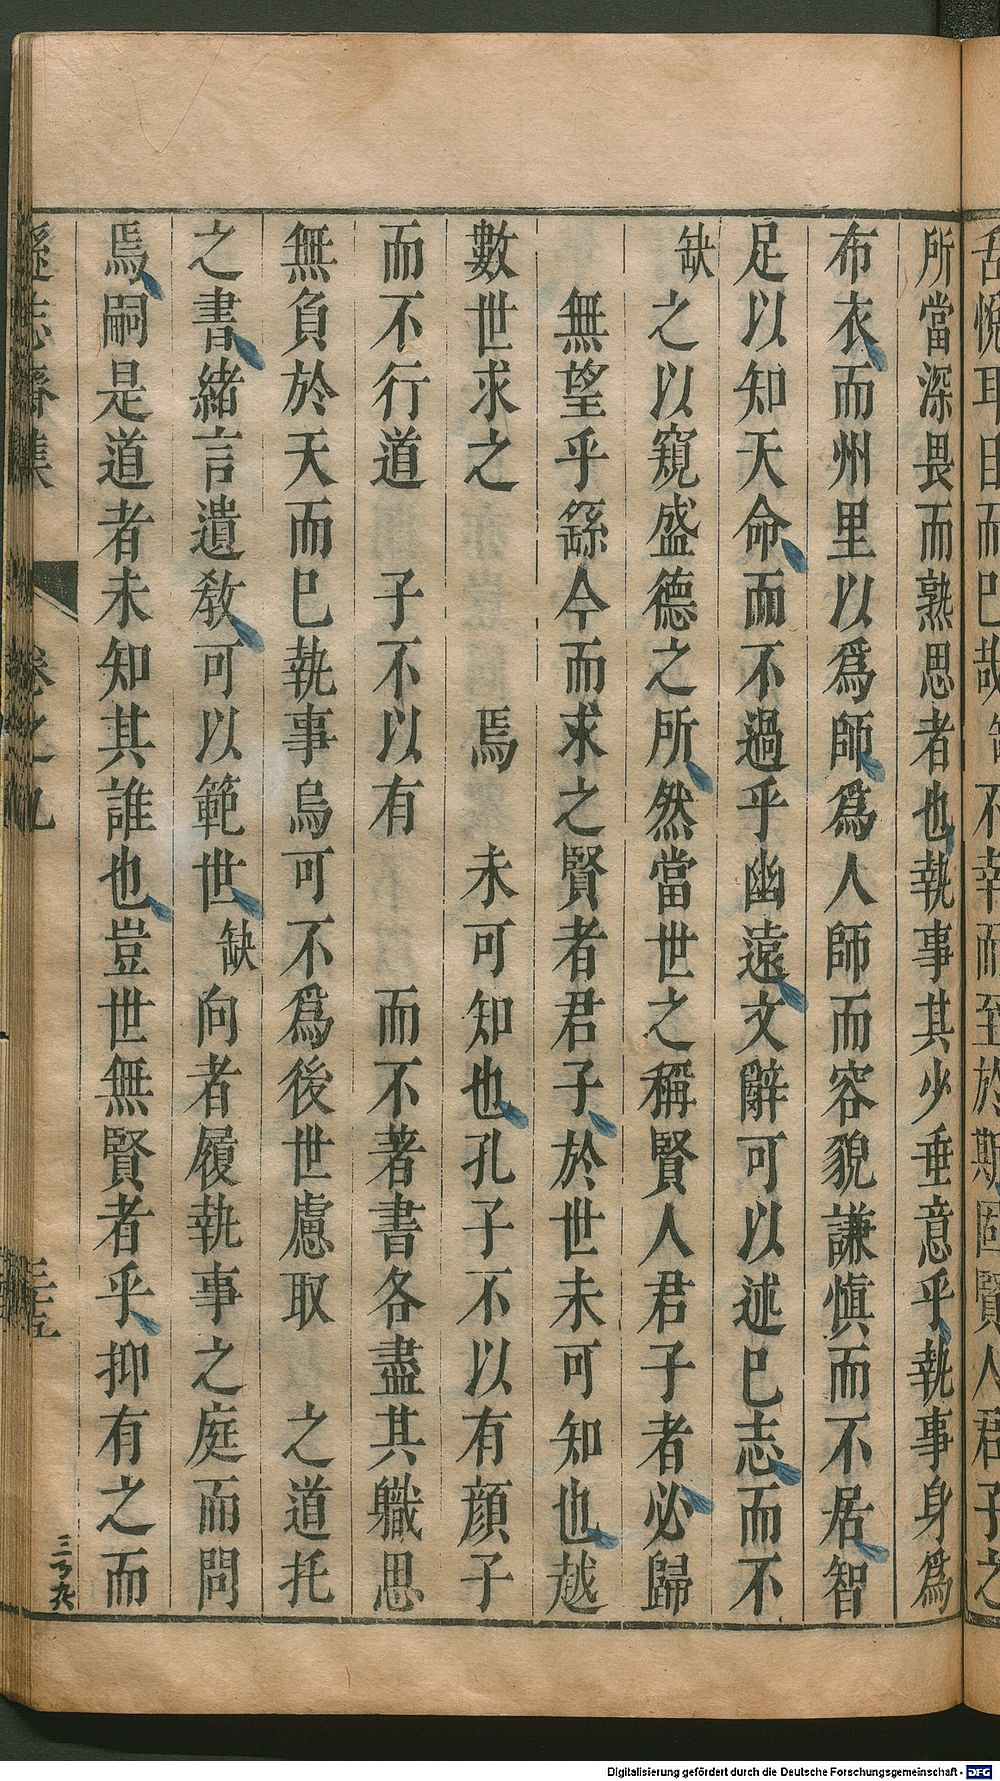 所當深畏而熟思者也執事其少垂意乎執事身爲
布衣而州里以爲師爲人師而容貌謙慎而不居智
足以知天命而不過乎幽遠文辭可以述巳志而不
缺之以窺盛德之所然當世之稱賢人君子者必歸
無望乎繇今而求之賢者君子於世未可知也越
數世求之 焉 未可知也孔子不以有顔子
而不行道 子不以有 而不著書各盡其職思
無負於天而巳執事烏可不爲後世慮取 之道托
之書緒言遺敎可以範世缺向者履執事之庭而問
焉嗣是道者未知其誰也豈世無賢者乎抑有之而
遜志齋集 卷之九
三五
Digitalisierung gefördert durch die Deutsche Forschungsgemeinschaft - DFG